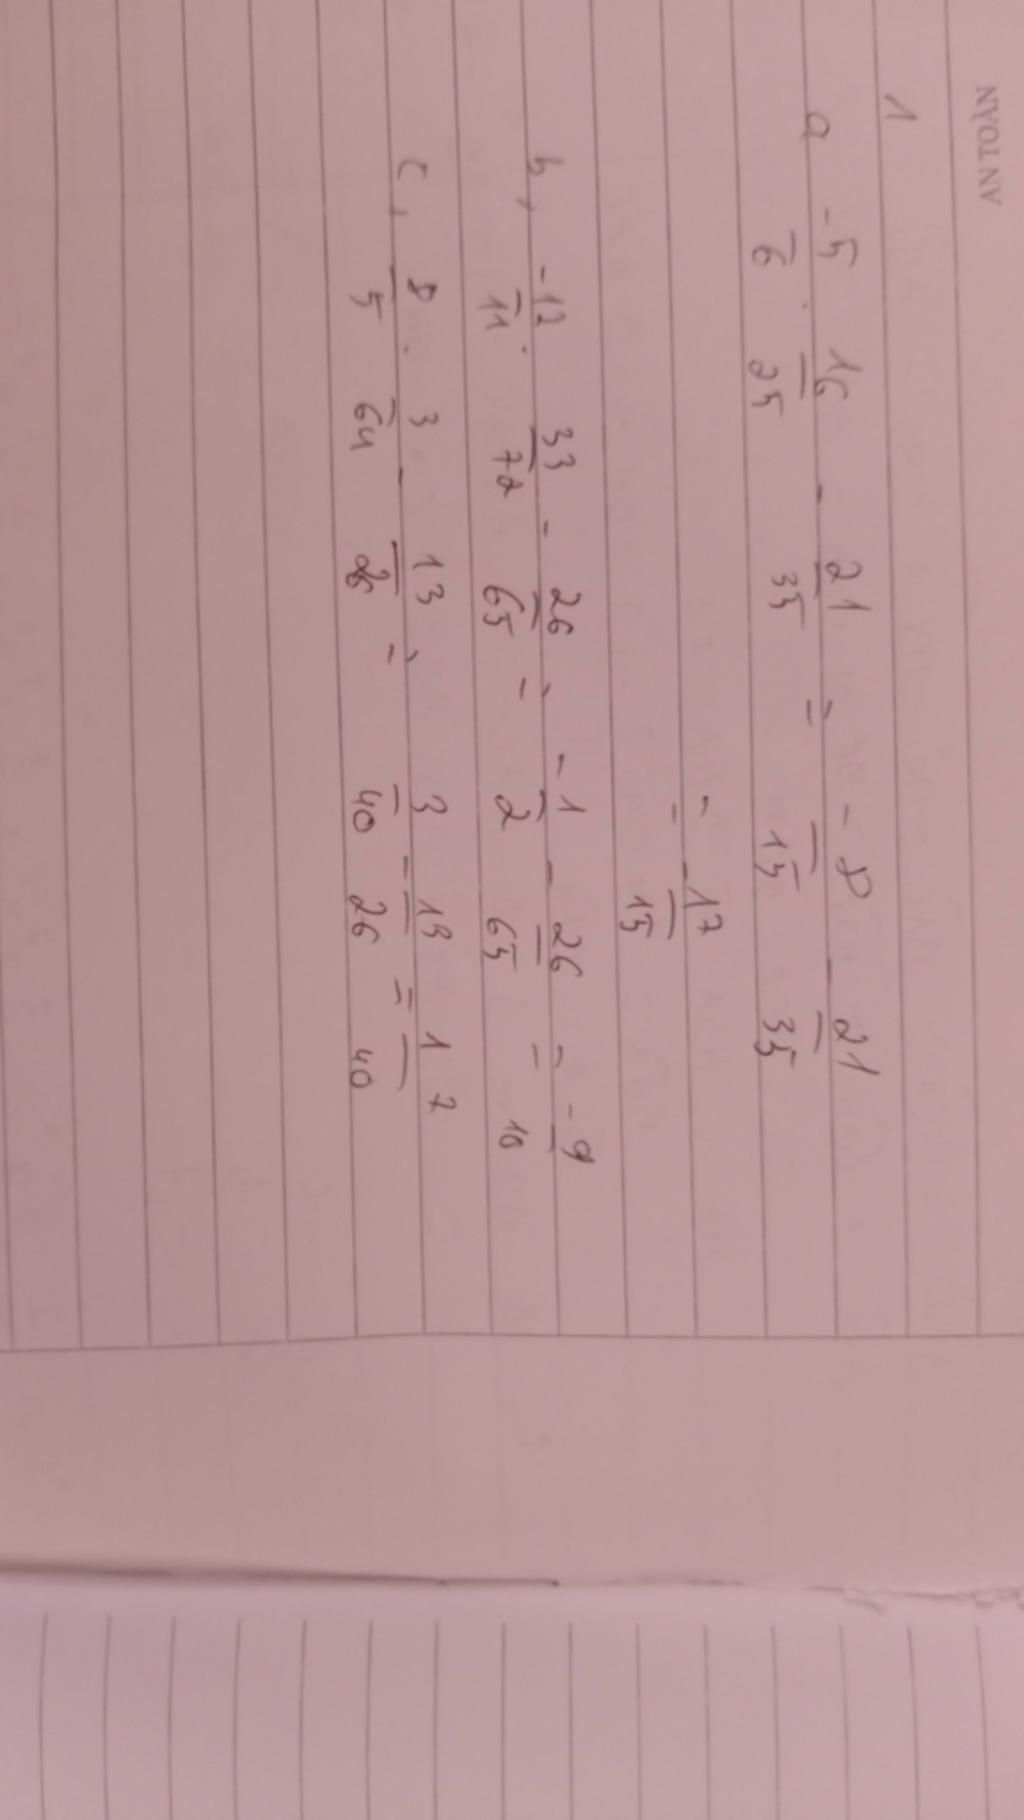 AN TOÀN
1
a -5/6 . 16/25 - 21/35 = -8/15 - 21/35
= -17/15
b, -12/11 . 33/72 - 26/65 = -1/2 - 26/65 = -9/10
c, 8/5 . 3/64 - 13/26 = 3/40 - 13/26 = 17/40